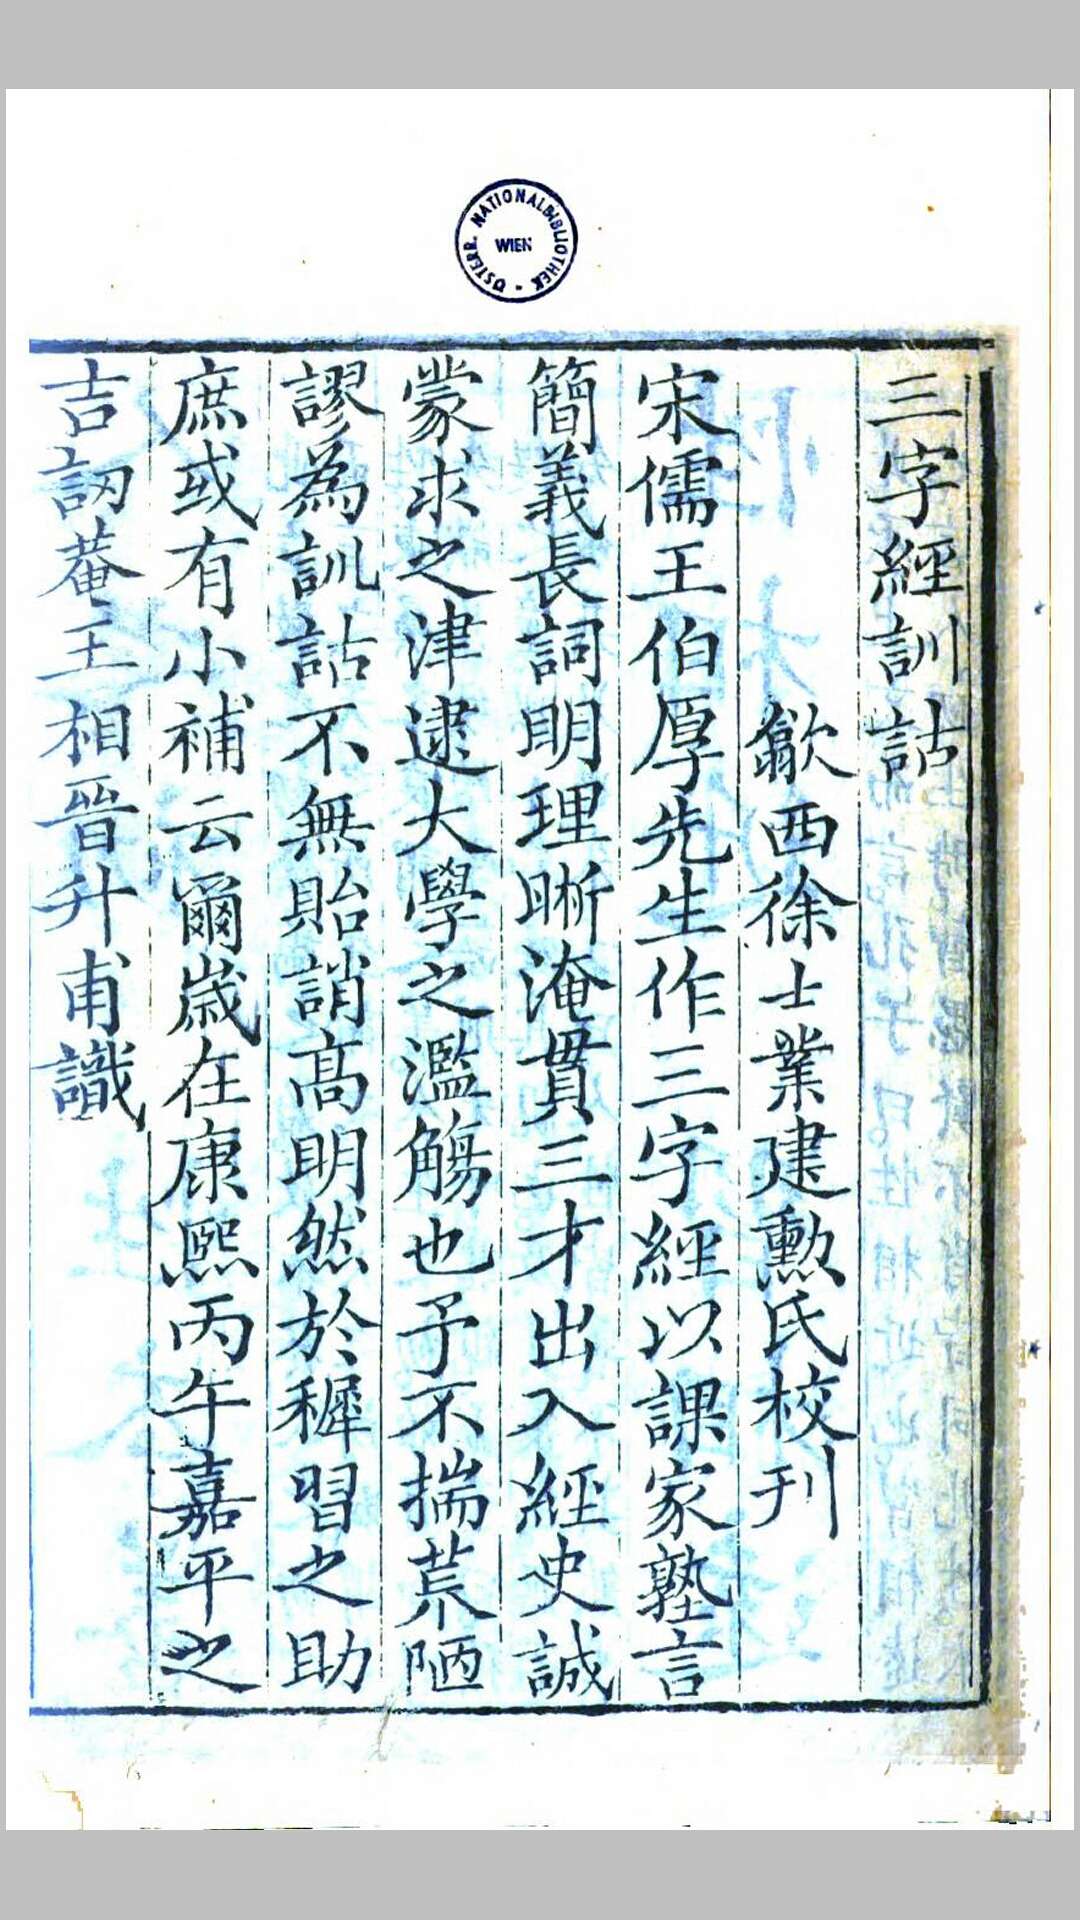 ÖSTERR. NATIONALBIBLIOTHEK
WIEN
三字經訓詁
歙西徐士業建勲氏校刊
宋儒王伯厚先生作三字經以課家塾言
簡義長詞明理晰淹貫三才出入經史誠
蒙求之津逮大學之濫觴也予不揣荒陋
謬為訓詁不無貽誚高明然於穉習之助
庶或有小補云爾歲在康熙丙午嘉平之
吉訒菴王相晉升甫識